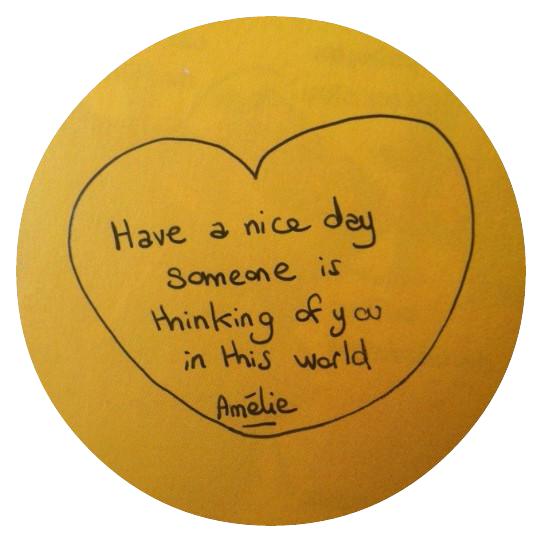 Have a nice day
someone is
thinking of you
in this world
Amélie